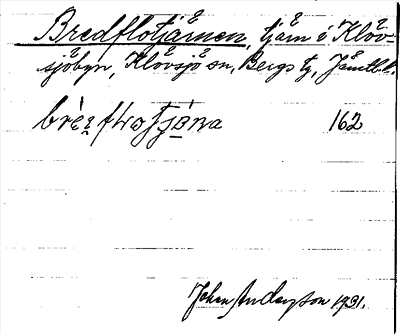 Bredflotjärnen, tjärn i Klöv-
sjöbyn, Klövsjö sn, Bergs tg, Jämtl.
162
Johan Anderson 1931.